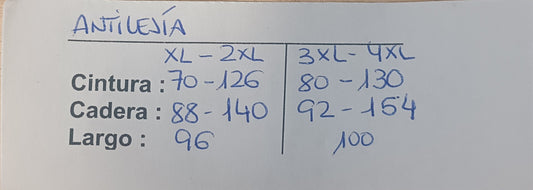 ANTILEJÍA
XL - 2XL 3XL - 4XL
Cintura : 70 - 126 80 - 130
Cadera : 88 - 140 92 - 154
Largo : 96 100